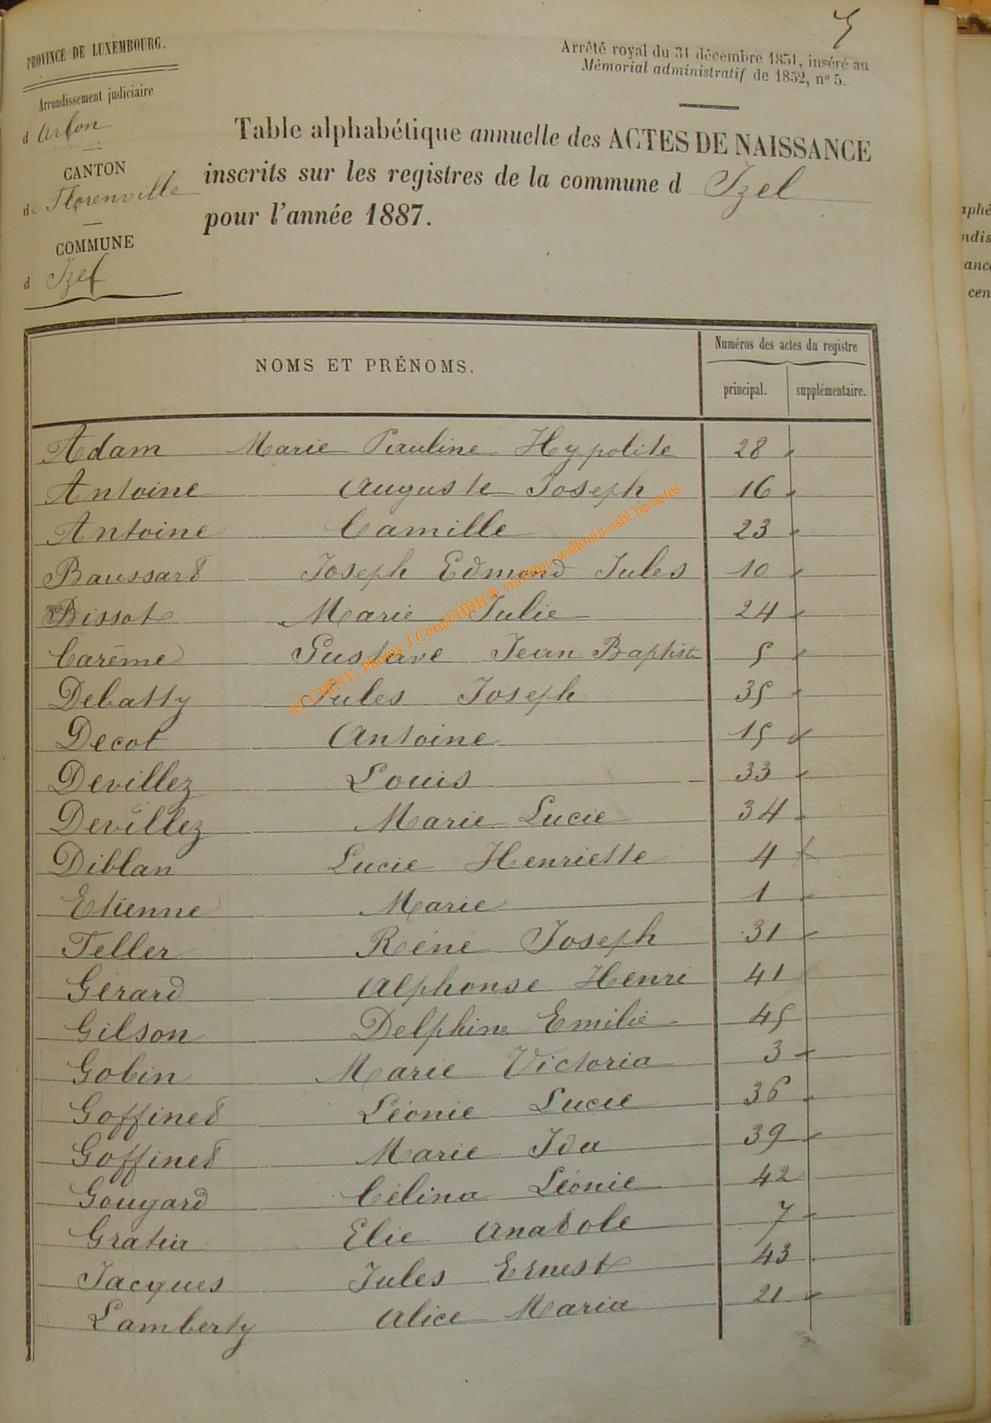 5
PROVINCE DE LUXEMBOURG.
Arrondissement judiciaire
d Arlon
CANTON
de Florenville
COMMUNE
d Izel
Arrêté royal du 31 décembre 1851, inséré au
Mémorial administratif de 1852, n° 5.
Table alphabétique annuelle des ACTES DE NAISSANCE
inscrits sur les registres de la commune d Izel
pour l'année 1887.
NOMS ET PRÉNOMS.
Numéros des actes du registre
principal. supplémentaire.
Adam Marie Pauline Hypolite 28
Antoine Auguste Joseph 16
Antoine Camille 23
Baussard Joseph Edmond Jules 10
Bissot Marie Julie 24
Carême Gustave Jean Baptiste 5
Debatty Jules Joseph 35
Decot Antoine 15
Devillez Louis 33
Devillez Marie Lucie 34
Diblan Lucie Henriette 4
Etienne Marie 1
Feller Réné Joseph 31
Gérard Alphonse Henri 41
Gilson Delphine Emilie 45
Gobin Marie Victoria 3
Goffinet Léonie Lucie 36
Goffinet Marie Ida 39
Gougard Célina Léonie 42
Gratia Elie Anatole 7
Jacques Jules Ernest 43
Lamberty Alice Maria 21
ACCHINY- photos J Cornil/HBH ® via http://wallonia-asbl.be/actes
aphé
ndis
anc
cen